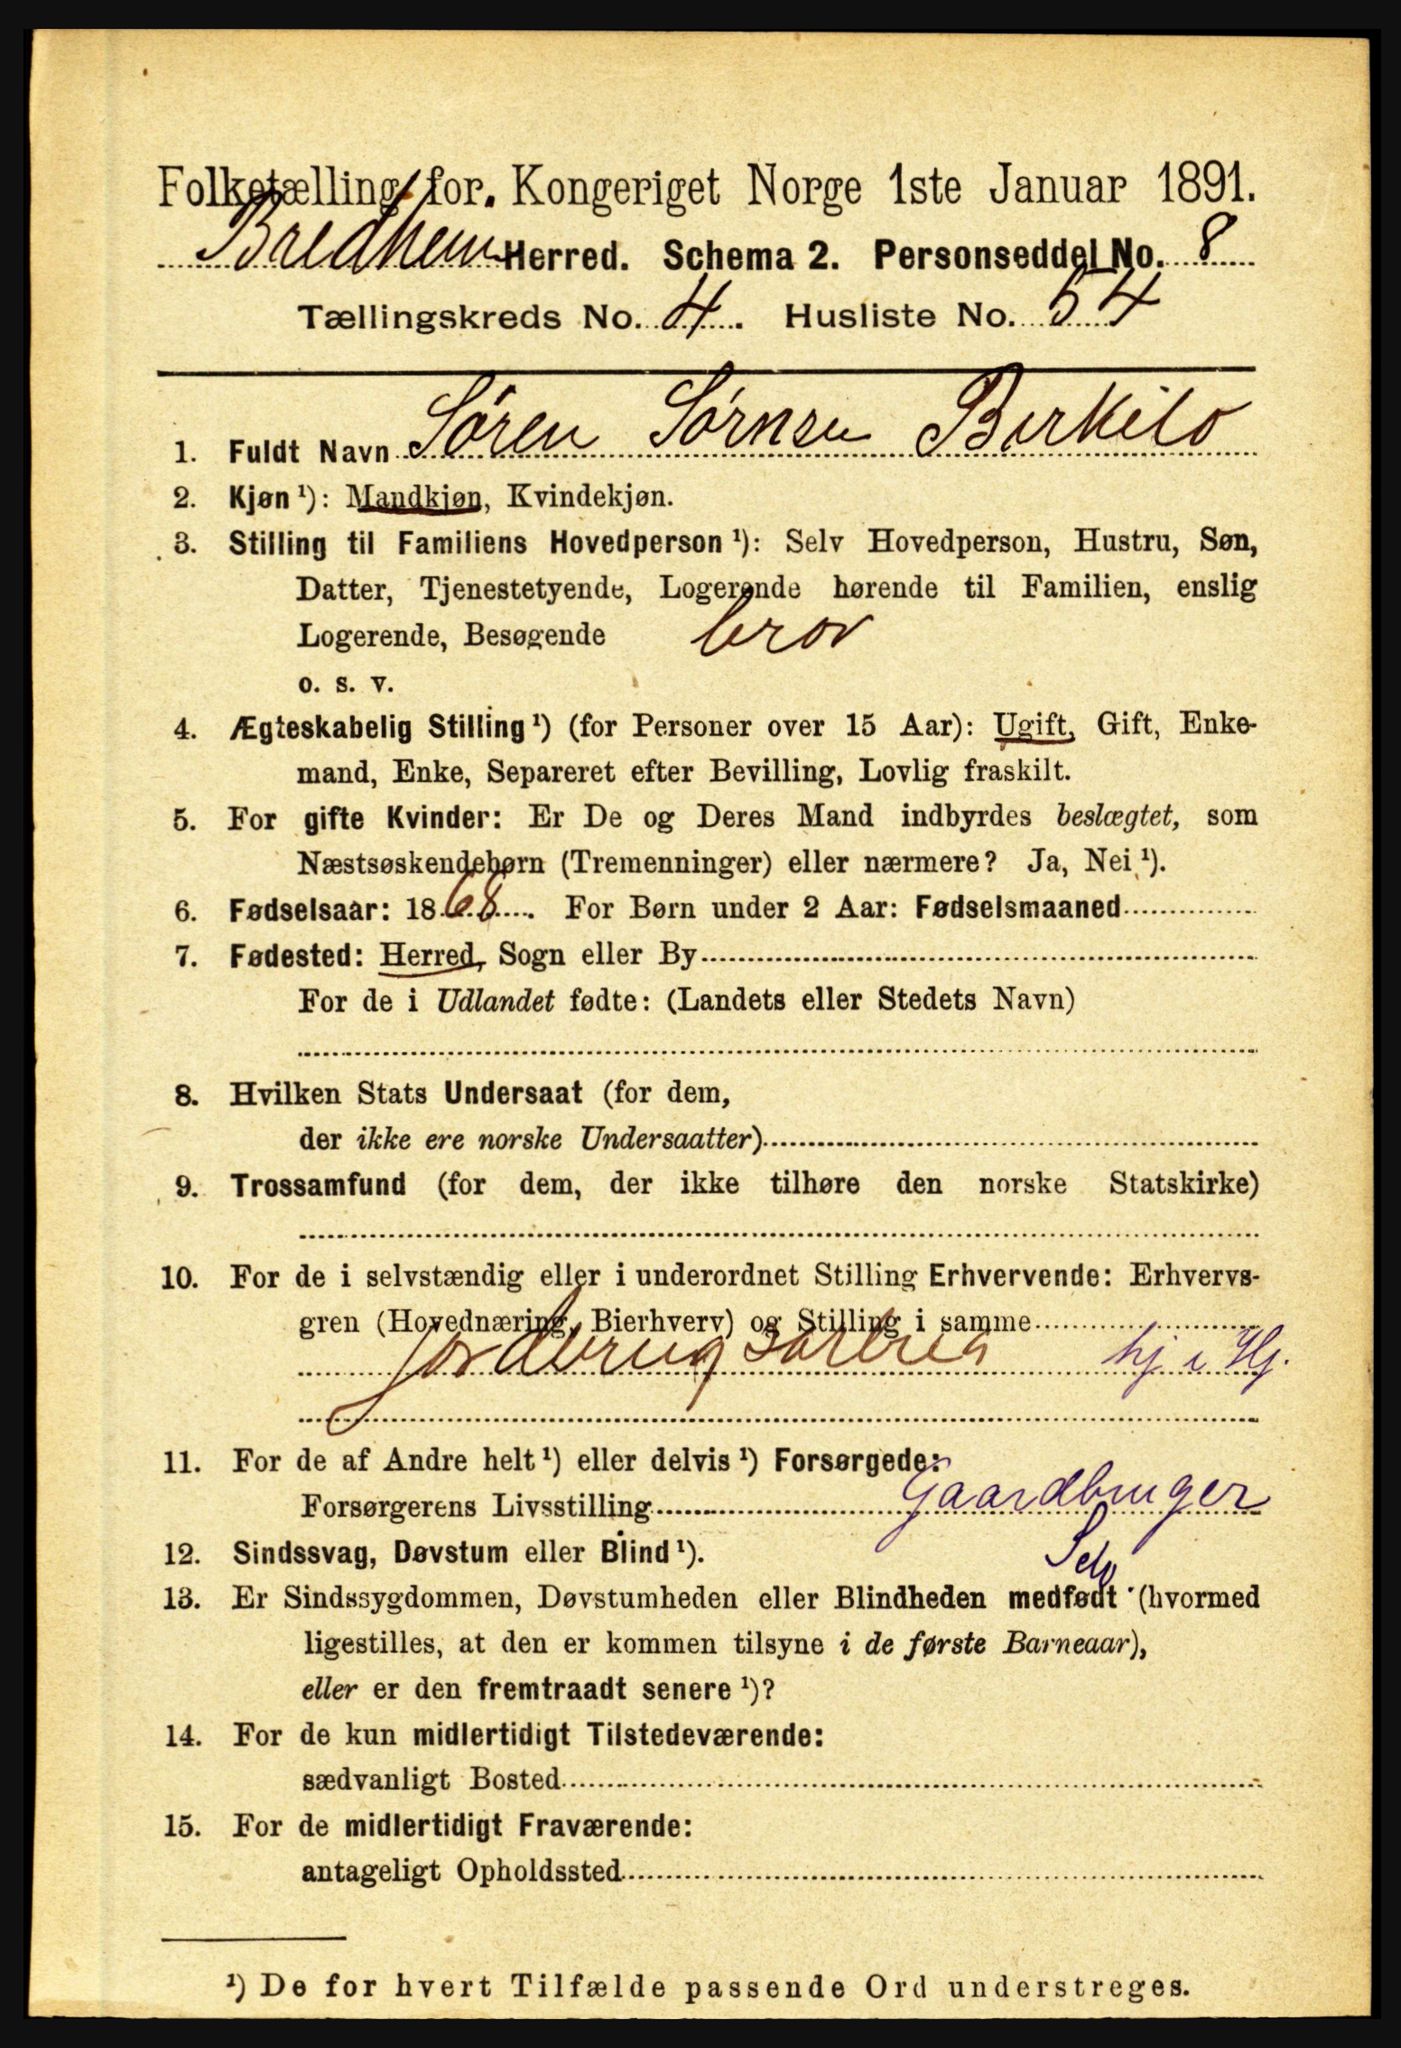 Folketælling for Kongeriget Norge 1ste Januar 1891.
Bredhem Herred. Schema 2. Personseddel No. 8
Tællingskreds No. 4. Husliste No. 54
1. Fuldt Navn Søren Sørnsen Birkelo
2. Kjøn ¹): Mandkjøn, Kvindekjøn.
3. Stilling til Familiens Hovedperson ¹): Selv Hovedperson, Hustru, Søn,
Datter, Tjenestetyende, Logerende hørende til Familien, enslig
Logerende, Besøgende bror
o. s. v.
4. Ægteskabelig Stilling ¹) (for Personer over 15 Aar): Ugift, Gift, Enke-
mand, Enke, Separeret efter Bevilling, Lovlig fraskilt.
5. For gifte Kvinder: Er De og Deres Mand indbyrdes beslægtet, som
Næstsøskendebørn (Tremenninger) eller nærmere? Ja, Nei ¹).
6. Fødselsaar: 1868. For Børn under 2 Aar: Fødselsmaaned
7. Fødested: Herred, Sogn eller By
For de i Udlandet fødte: (Landets eller Stedets Navn)
8. Hvilken Stats Undersaat (for dem,
der ikke ere norske Undersaatter)
9. Trossamfund (for dem, der ikke tilhøre den norske Statskirke)
10. For de i selvstændig eller i underordnet Stilling Erhvervende: Erhvervs-
gren (Hovednæring, Bierhverv) og Stilling i samme
Jordbrug hj i Hj.
11. For de af Andre helt ¹) eller delvis ¹) Forsørgede:
Forsørgerens Livsstilling Gaardbruger
12. Sindssvag, Døvstum eller Blind ¹). Selv
13. Er Sindssygdommen, Døvstumheden eller Blindheden medfødt (hvormed
ligestilles, at den er kommen tilsyne i de første Barneaar),
eller er den fremtraadt senere ¹)?
14. For de kun midlertidigt Tilstedeværende:
sædvanligt Bosted
15. For de midlertidigt Fraværende:
antageligt Opholdssted
¹) De for hvert Tilfælde passende Ord understreges.